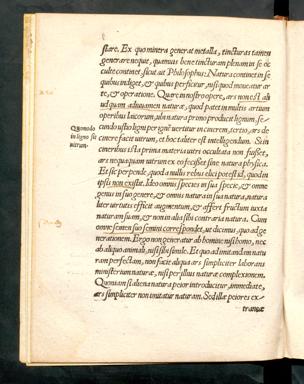 stare. Ex quo minera generat metalla, tincturas tamen
generare neque, quamuis bene tincturam plenam in se oc
culte contineat, sicut ait Philosophus: Natura continet in se
quibus indiget, & quibus perficitur, nisi quod moueatur ar
te, & operatione. Quare in nostro opere, ars non est ali
ud quam adiuuamen naturæ, quod patet in multis artium
operibus laicorum, ubi natura primo producit lignum, se-
Quomodo
in ligno sit
uitrum.
cundo ustio ligni per ignē uertitur in cinerem, tertio, ars de
cinere facit uitrum, et hoc taliter est intelligendum. Si in
cineribus ista prima materia uitri occultata non fuisset,
ars nequaquam uitrum ex eo fecisset sine natura physica.
Et sic perpende, quod a nullis rebus elici potest id, quod in
ipsis non existit. Ideo omnis species in sua specie, & omne
genus in suo genere, & omnis natura in sua natura, natura
liter uirtutis efficit augmentum, & affert fructum iuxta
naturam suam, & non in alia sibi contraria natura. Cum
omne semen suo semini correspondet, ut dicimus, quo ad ge
nerationem. Ergo non generatur ab homine nisi homo, nec
ab aliquo animali, nisi sibi simile. Et quo ad imitandam natu
ram perfectam, non facit aliqua ars simpliciter laborans
ministerium naturæ, nisi per illius naturæ complexionem.
Quoniam si aliena natura peior introducitur, immediate,
ars simpliciter non imitatur naturam. Sed illæ peiores ex-
traneæ